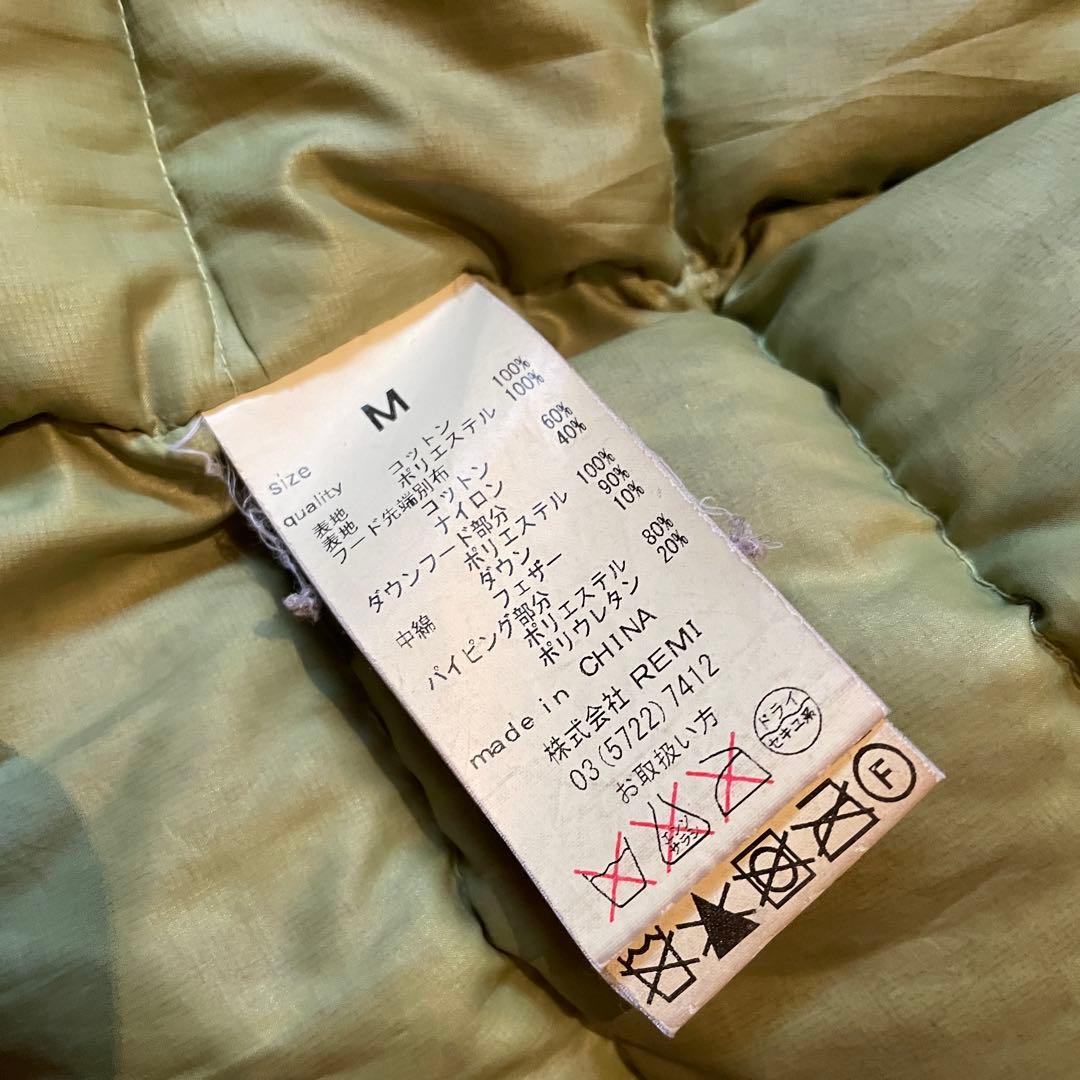 size M
quality
表地 コットン 100%
表地 ポリエステル 100%
フード先端別布
コットン 60%
ナイロン 40%
ダウンフード部分
ポリエステル 100%
中綿 ダウン 90%
フェザー 10%
パイピング部分
ポリエステル 80%
ポリウレタン 20%
made in CHINA
株式会社 REMI
03(5722)7412
お取扱い方
エンソ
サラシ
ドライ
セキユ系
F